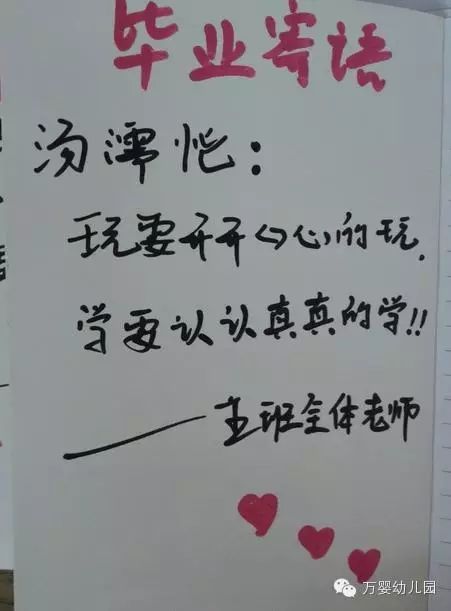 毕业寄语
汤濡恺:
玩要开开心心的玩.
学要认认真真的学!!
——主班全体老师
万婴幼儿园